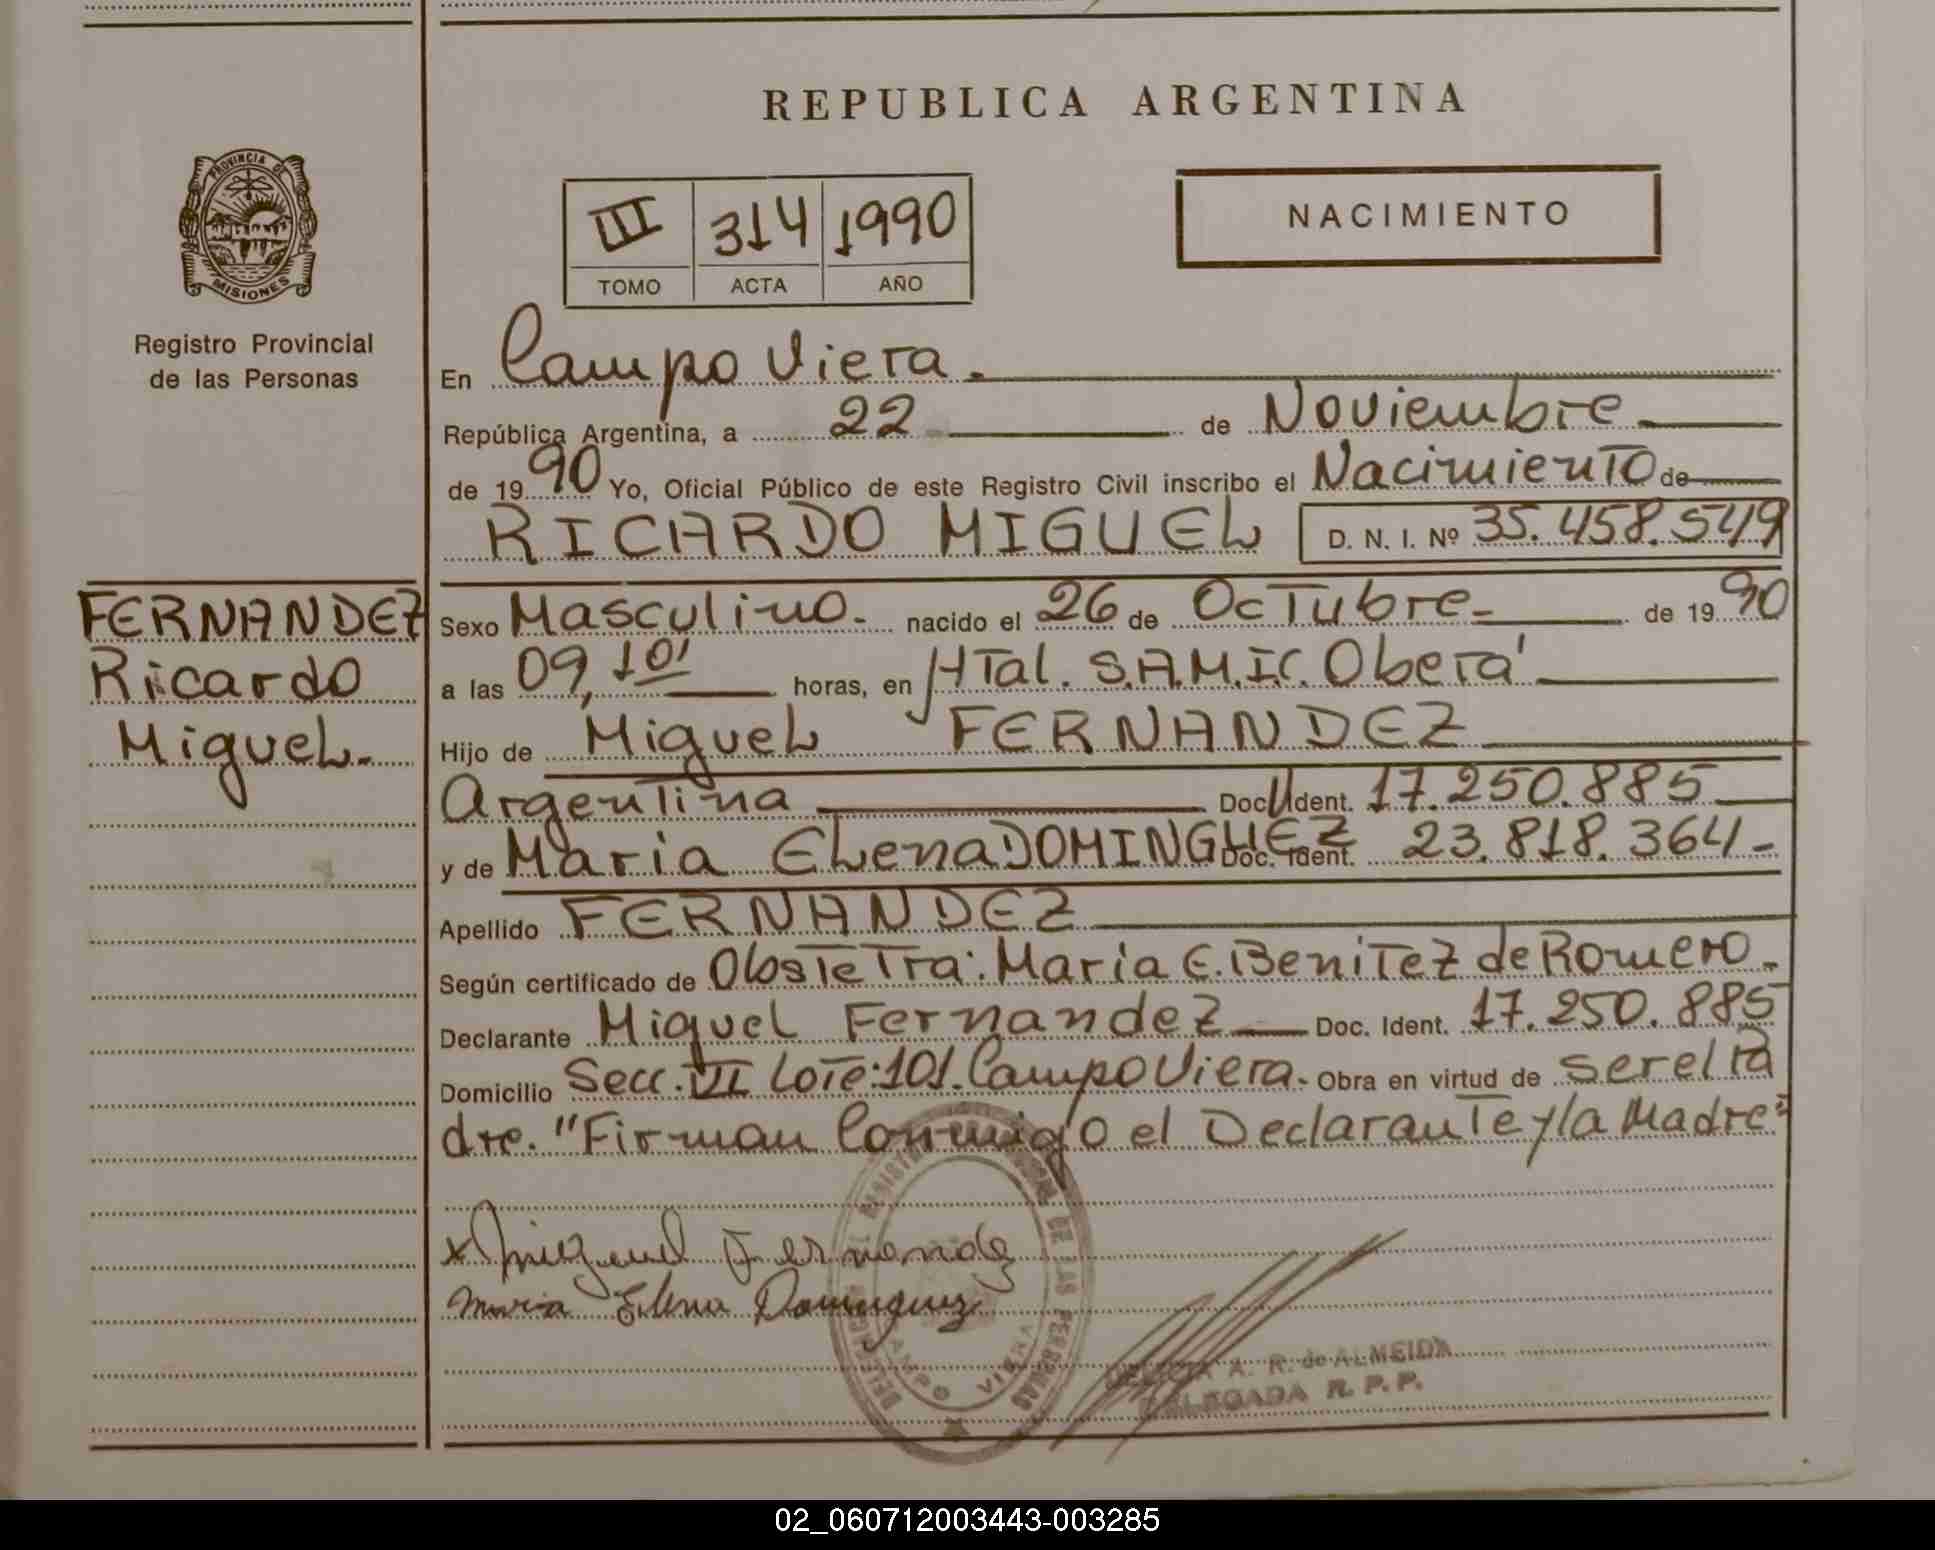 REPUBLICA ARGENTINA
PROVINCIA DE
MISIONES
Registro Provincial
de las Personas
III 314 1990
TOMO ACTA AÑO
NACIMIENTO
En Campo Viera.
República Argentina, a 22 de Noviembre
de 1990 Yo, Oficial Público de este Registro Civil inscribo el Nacimiento de
RICARDO MIGUEL D. N. I. Nº 35.458.549
FERNANDEZ
Ricardo
Miguel.
Sexo Masculino. nacido el 26 de Octubre de 1990
a las 09,10' horas, en Htal. S.A.M.I.C. Oberá
Hijo de Miguel FERNANDEZ
Argentina Doc. Ident. 17.250.885
y de Maria Elena DOMINGUEZ Doc. Ident. 23.818.364
Apellido FERNANDEZ
Según certificado de Obstetra: Maria E. Benitez de Romero.
Declarante Miguel Fernandez Doc. Ident. 17.250.885
Domicilio Secc. VII Lote: 101. Campo Viera. Obra en virtud de ser el pa
dre. "Firman Conmigo el Declarante y la Madre"
x Miguel Fernandez
Maria Elena Dominguez
DE LAS PERSONAS
CAMPO VIERA
A. R. de ALMEIDA
DELEGADA R. P. P.
02_060712003443-003285